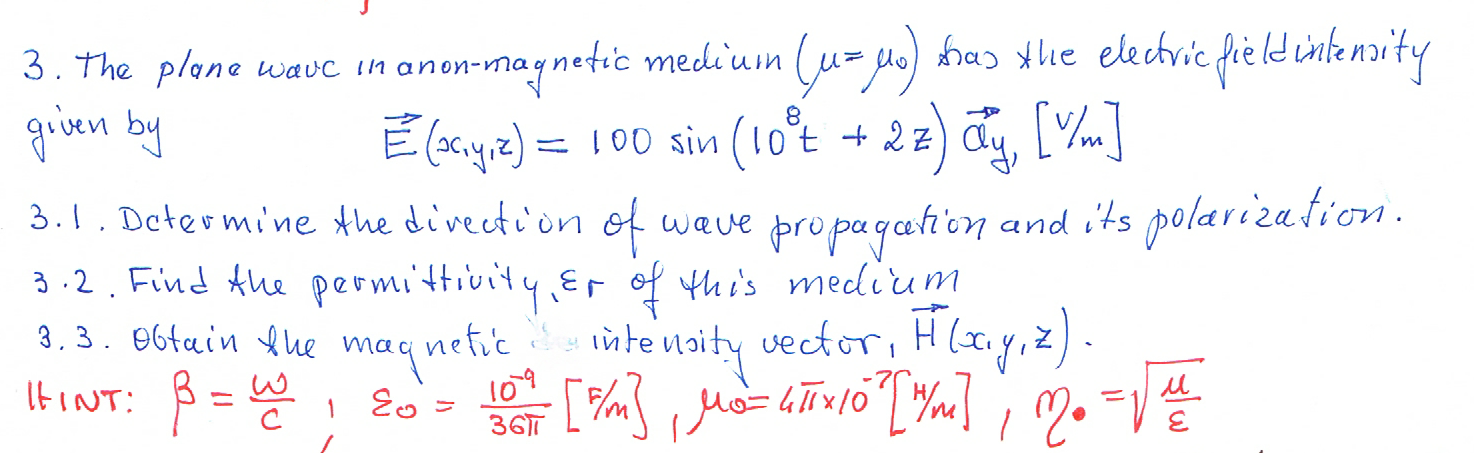 3. The plane wave in a non-magnetic medium (μ=μ₀) has the electric field intensity
given by E⃗(x,y,z) = 100 sin(10⁸t + 2z) a⃗y, [V/m]
3.1. Determine the direction of wave propagation and its polarization.
3.2. Find the permittivity, εr of this medium
3.3. Obtain the magnetic intensity vector, H⃗(x,y,z).
HINT: β = ω/c ; ε₀ = 10⁻⁹/36π [F/m], μ₀ = 4π×10⁻⁷ [H/m], η₀ = √(μ/ε)